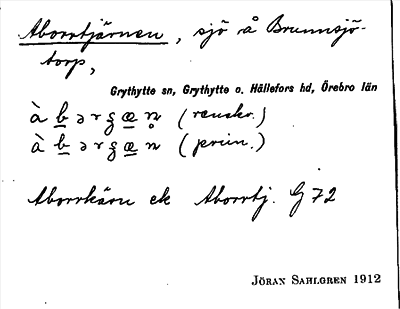 Aborrtjärnen, sjö å Brunnsjö-
torp,
Grythytte sn, Grythytte o. Hällefors hd, Örebro län
à b ə r ʒ æ n̥ (renskr.)
à b ə r ʒ æ n (prim.)
Aborrkärn ek Aborrtj. G 72
JÖRAN SAHLGREN 1912